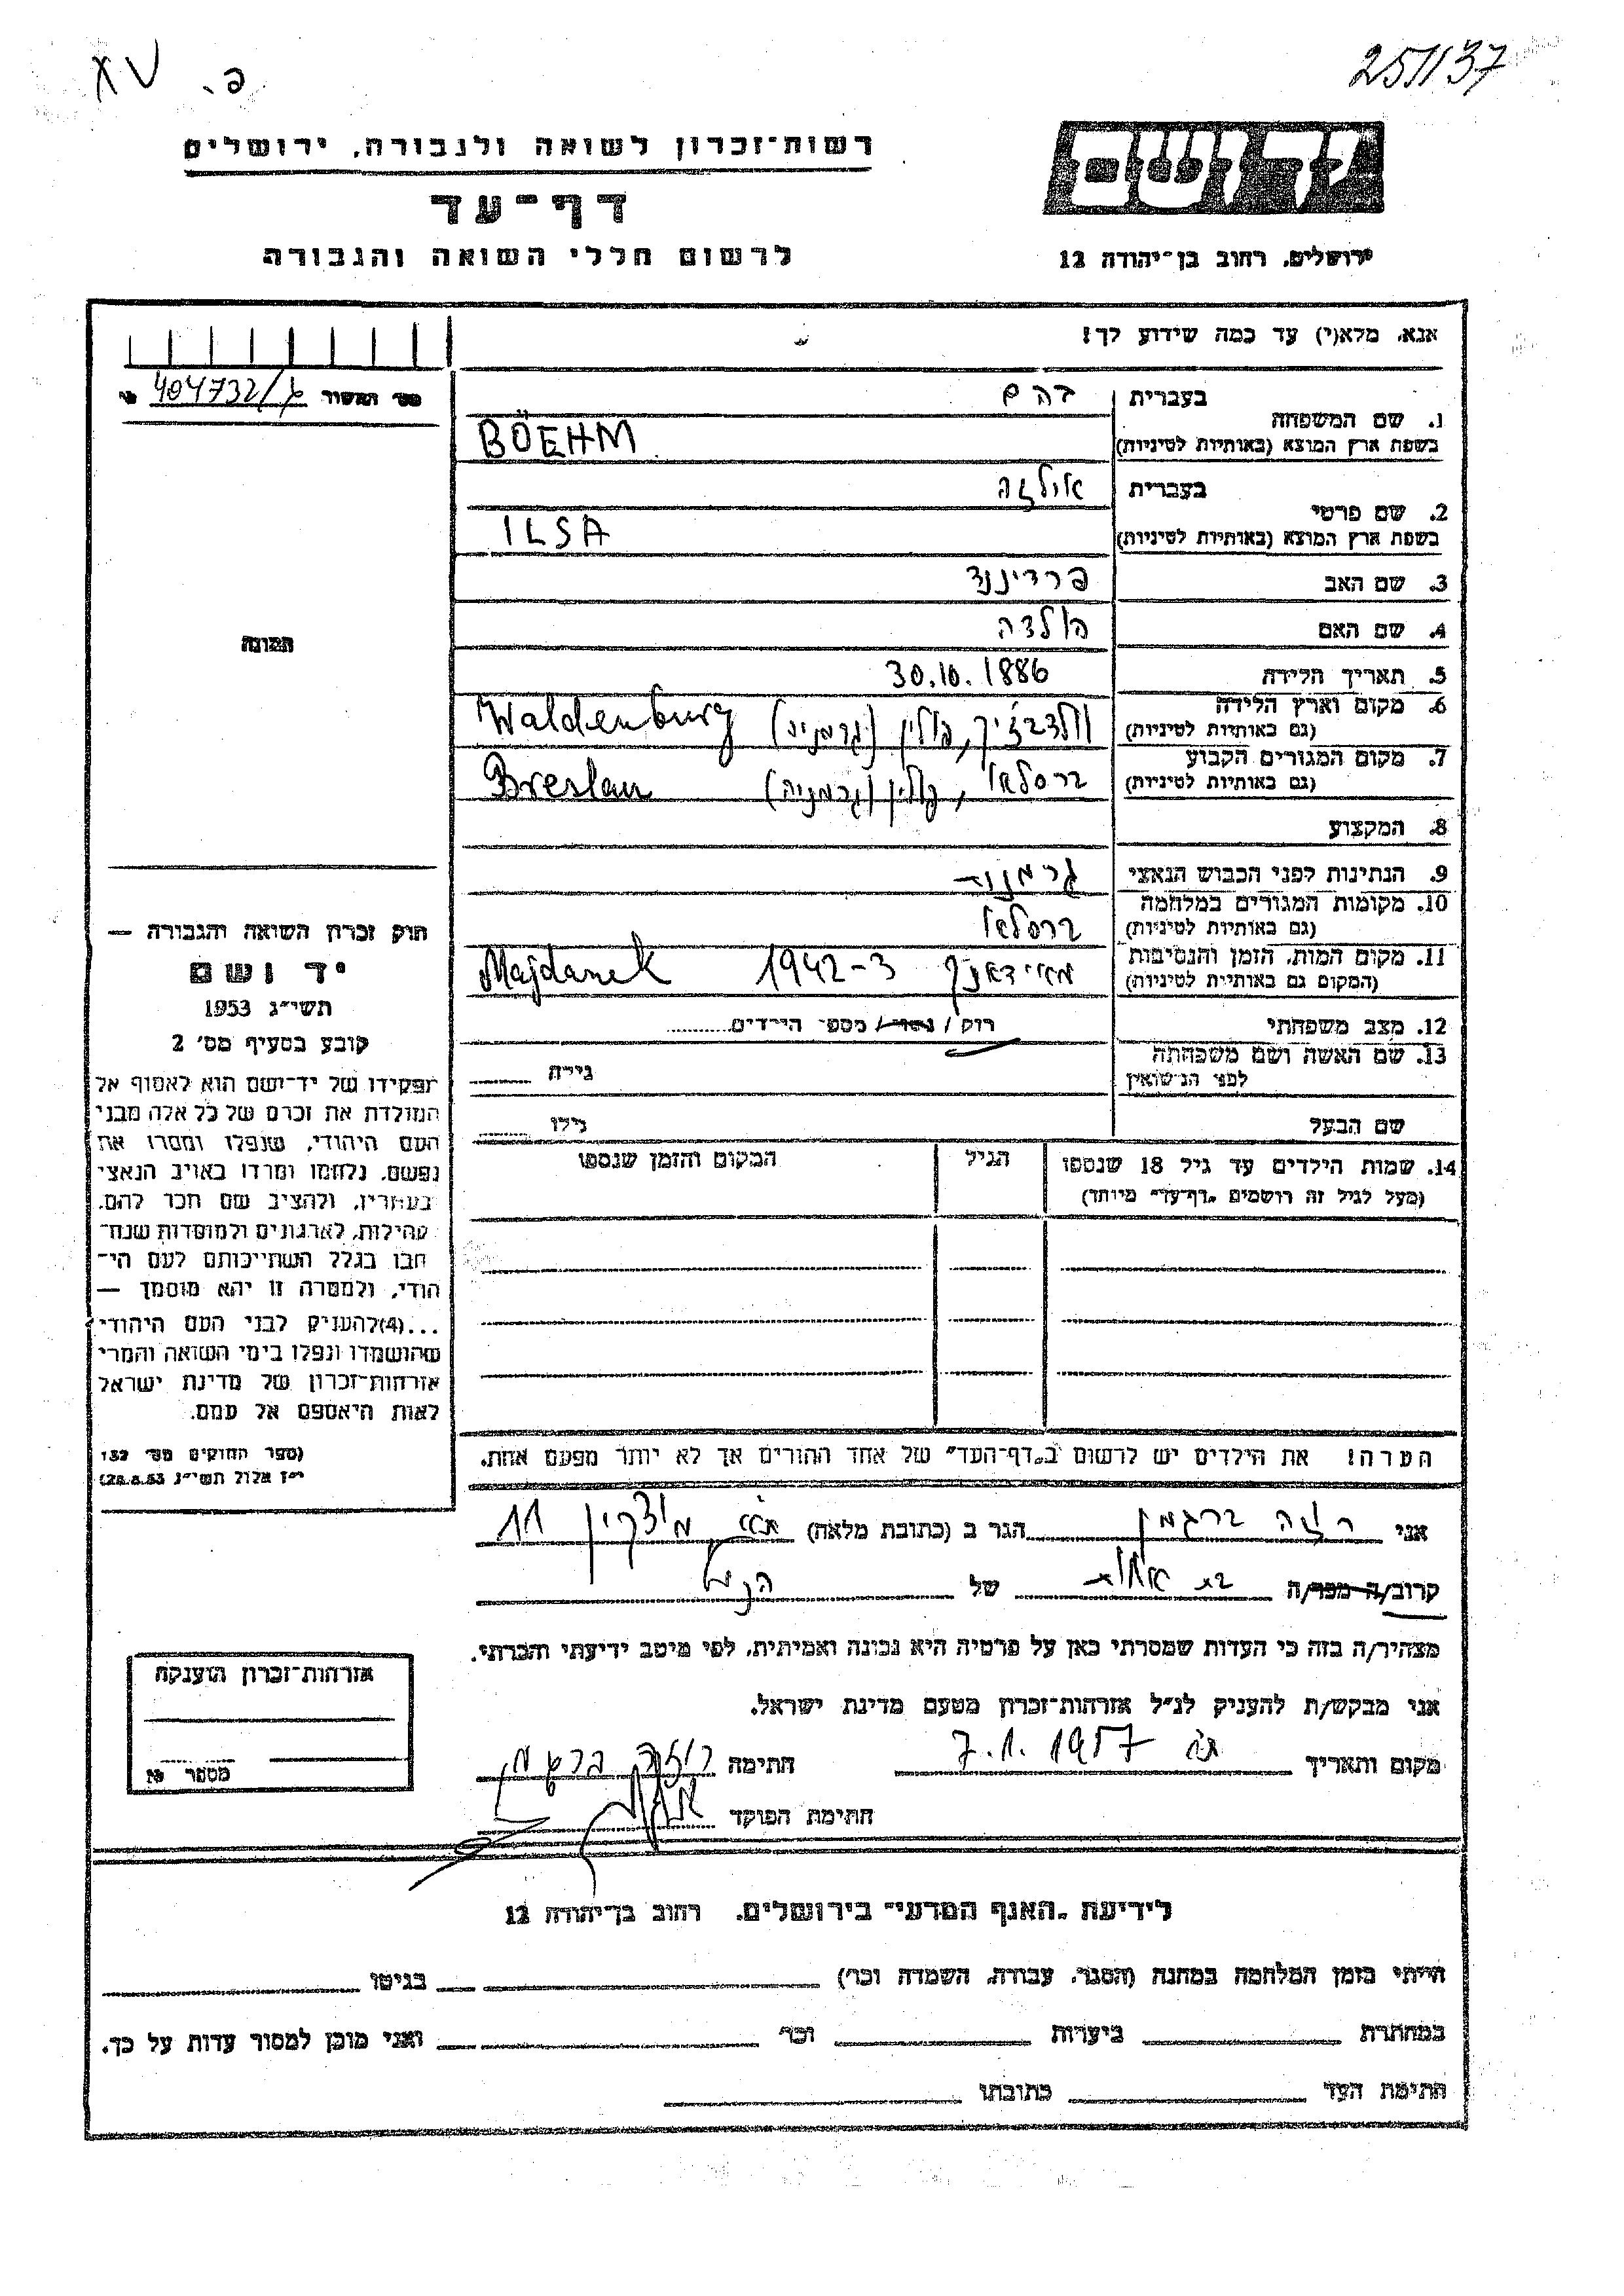 XV
פ.
251/137
רשות־זכרון לשואה ולגבורה, ירושלים
דף־עד
לרשום חללי השואה והגבורה
ירושלים, רחוב בן־יהודה 12
אנא, מלא(י) עד כמה שידוע לך!
מס׳ האשור 404732/
1. שם המשפחה
בעברית בהם
בשפת ארץ המוצא (באותיות לטיניות) BÖEHM
2. שם פרטי
בעברית אילזה
בשפת ארץ המוצא (באותיות לטיניות) ILSA
3. שם האב פרדיננד
4. שם האם הולדה
5. תאריך הלידה 30.10.1886
6. מקום וארץ הלידה
(גם באותיות לטיניות) פולין (גרמניה) Waldenburg
7. מקום המגורים הקבוע
(גם באותיות לטיניות) ברסלאו, פולין (גרמניה) Breslau
8. המקצוע
9. הנתינות לפני הכבוש הנאצי גרמנית
10. מקומות המגורים במלחמה
(גם באותיות לטיניות) ברסלאו
11. מקום המות, הזמן והנסיבות
(המקום גם באותיות לטיניות) מאידאנק 1942-3 Majdanek
12. מצב משפחתי רוק / נשוי / מספר הילדים
13. שם האשה ושם משפחתה
לפני הנישואין
גילה
שם הבעל
גילו
14. שמות הילדים עד גיל 18 שנספו
(מעל לגיל זה רושמים "דף־עד" מיוחד)
הגיל
המקום והזמן שנספו
הערה! את הילדים יש לרשום ב"דף־העד" של אחד ההורים אך לא יותר מפעם אחת.
תמונה
חוק זכרון השואה והגבורה —
יד ושם
תשי״ג 1953
קובע בסעיף מס׳ 2
תפקידו של יד־ושם הוא לאסוף אל
המולדת את זכרם של כל אלה מבני
העם היהודי, שנפלו ומסרו את
נפשם, נלחמו ומרדו באויב הנאצי
בעוזריו, ולהציב שם וזכר להם,
לקהילות, לארגונים ולמוסדות שנח־
רבו בגלל השתייכותם לעם הי־
הודי, ולמטרה זו יהא מוסמך —
...(4)להעניק לבני העם היהודי
שהושמדו ונפלו בימי השואה והמרי
אזרחות־זכרון של מדינת ישראל
לאות היאספם אל עמם.
(ספר החוקים מס׳ 132
י״ז אלול תשי״ג 28.8.53)
אני רוזה ברגמן הגר ב (כתובת מלאה) ת״א, מוצקין 11
קרוב/ה מכר/ה בת אחות של הנ״ל
מצהיר/ה בזה כי העדות שמסרתי כאן על פרטיה היא נכונה ואמיתית, לפי מיטב ידיעתי והכרתי.
אני מבקש/ת להעניק לנ״ל אזרחות־זכרון מטעם מדינת ישראל.
מקום ותאריך ת״א 7.1.1957 חתימה רוזה ברגמן
חתימת הפוקד
אזרחות־זכרון הוענקה
מספר №
לידיעת "האגף המדעי" בירושלים, רחוב בן־יהודה 12
הייתי בזמן המלחמה במחנה (הסגר, עבודה, השמדה וכו׳) בגיטו
במחתרת ביערות וכו׳ ואני מוכן למסור עדות על כך.
חתימת העד כתובתו